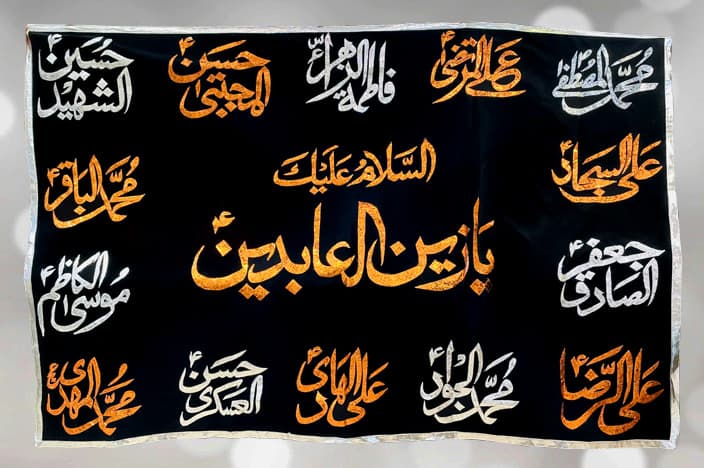 محمد المصطفےٰ
علی المرتضیٰ ؑ
فاطمة الزهراء ؑ
حسن ؑ
المجتبیٰ
حسین ؑ
الشهید
علی السجاد ؑ
محمد الباقر ؑ
السلام علیک
یا زین العابدین ؑ
جعفر ؑ
الصادق
موسی الکاظم ؑ
علی الرضا ؑ
محمد الجواد ؑ
علی الهادی ؑ
حسن ؑ
العسکری
محمد المهدی ؑ